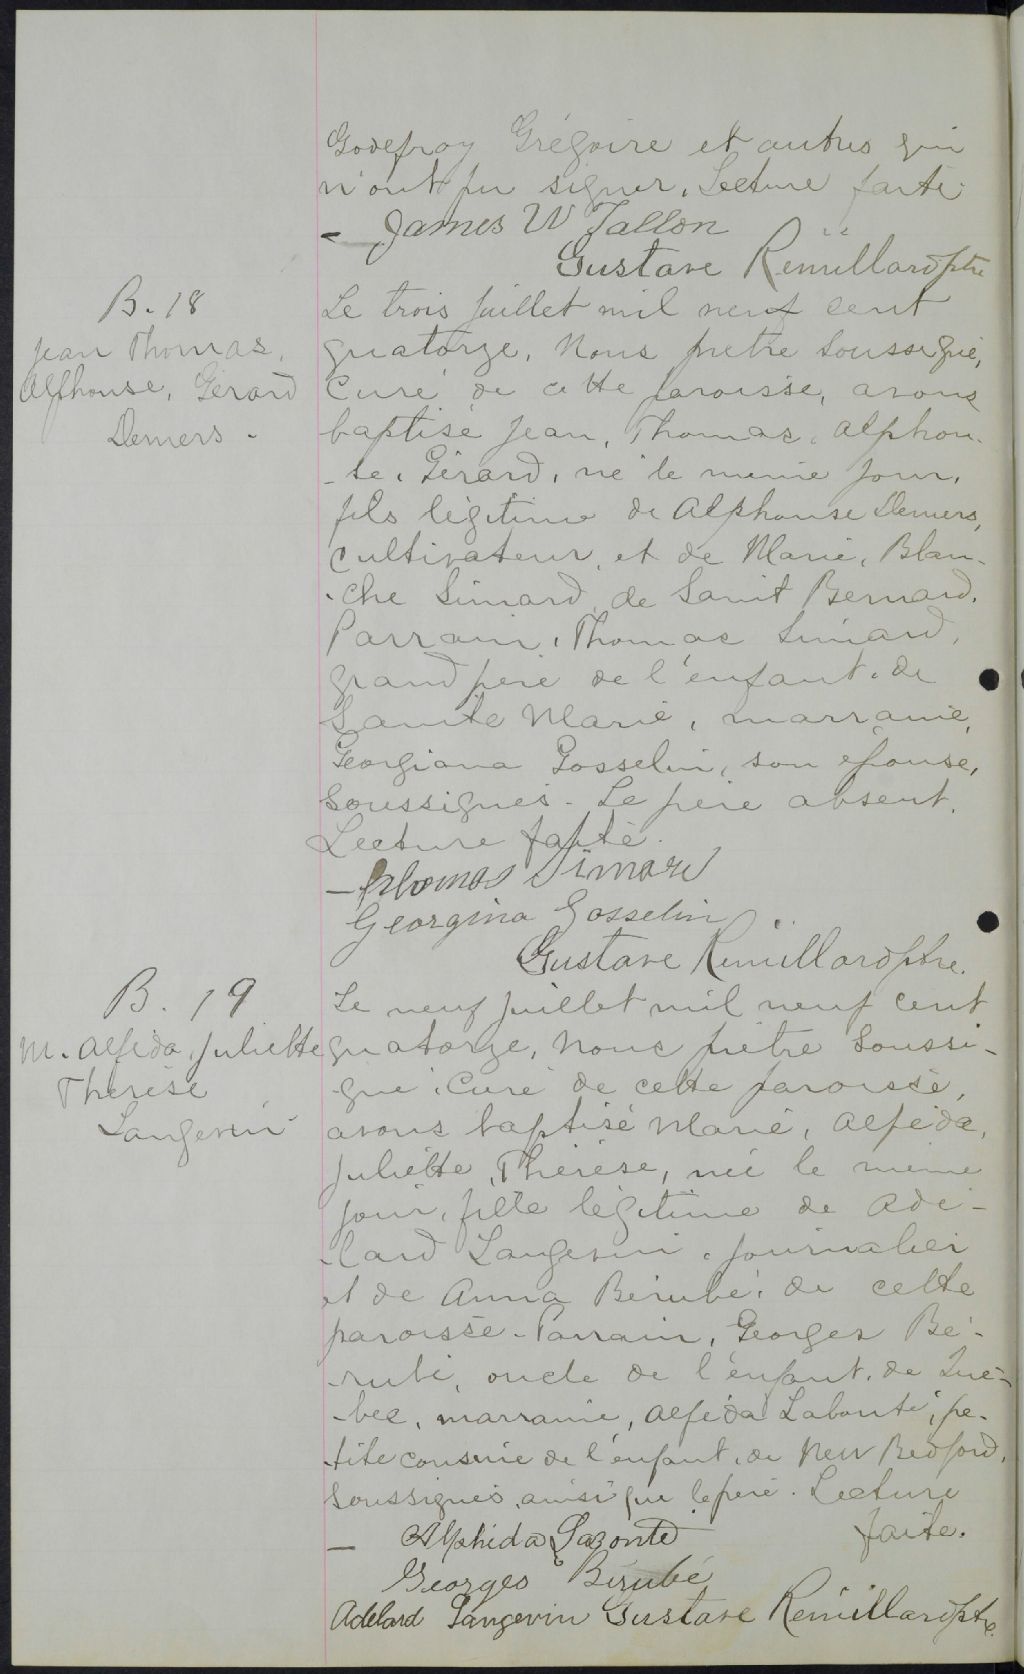 Godefroy Grégoire et autres qui
n'ont pu signer. Lecture faite.
James W Tallon
Gustave Remillard ptre
B. 18
Jean Thomas,
Alphonse, Gérard
Demers -
Le trois Juillet mil neuf cent
quatorze, Nous prêtre soussigné,
Curé de cette paroisse, avons
baptisé Jean, Thomas, Alphon-
-se, Gérard, né le même jour,
fils légitime de Alphonse Demers,
cultivateur, et de Marie, Blan-
-che Simard, de Saint Bernard.
Parrain, Thomas Simard,
grand père de l'enfant, de
Sainte Marie, marraine,
Georgiana Gosselin, son épouse,
soussignés - Le père absent.
Lecture faite.
- Thomas Simard
Georgina Gosselin
Gustave Remillard ptre.
B. 19
M. Alfeda, Juliette
Thérèse
Langevin
Le neuf Juillet mil neuf cent
quatorze, Nous prêtre soussi-
-gné, Curé de cette paroisse,
avons baptisé Marie, Alfeda,
Juliette, Thérèse, née le même
jour, fille légitime de Adé-
-lard Langevin, journalier
et de Anna Bérubé, de cette
paroisse - Parrain, Georges Bé-
-rubé, oncle de l'enfant, de Qué-
-bec, marraine, Alfeda Labonté, pe-
-tite cousine de l'enfant, de New Bedford,
soussignés, ainsi que le père. Lecture
faite.
- Alphida Labonté
Georges Bérubé
Adelard Langevin Gustave Remillard ptre.